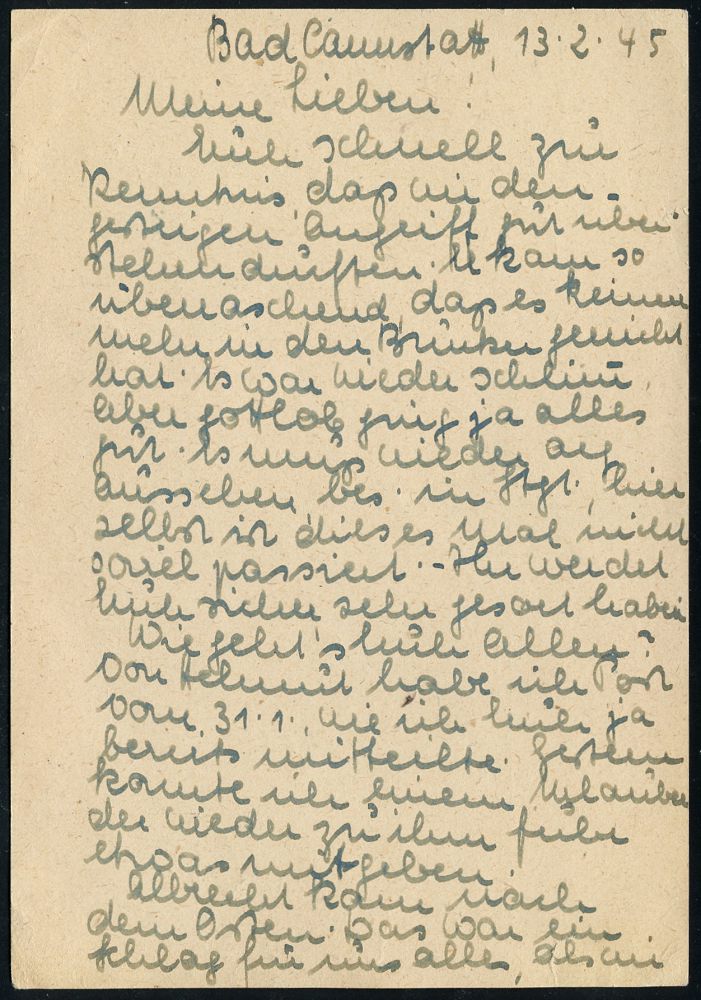 Bad Cannstatt, 13.2.45
Meine Lieben!
Euch schnell zur
Kenntnis, daß wir den
gestrigen Angriff gut über-
stehen durften. Er kam so
überraschend, daß es keinem
mehr in den Bunker gereicht
hat. Es war wieder schlimm,
aber gottlob ging ja alles
gut. Es muß wieder arg
aussehen, bes. in Stgt., hier
selbst ist dieses Mal nicht
soviel passiert. - Ihr werdet
Euch sicher sehr gesorgt haben
Wie geht's Euch Allen?
Von Helmut habe ich Post
vom 31.1., wie ich Euch ja
bereits mitteilte. Gestern
konnte ich einem Urlauber
der wieder zu ihm fuhr
etwas mitgeben.
Albrecht kam nach
dem Osten. Das war ein
Schlag für uns alle, als wir